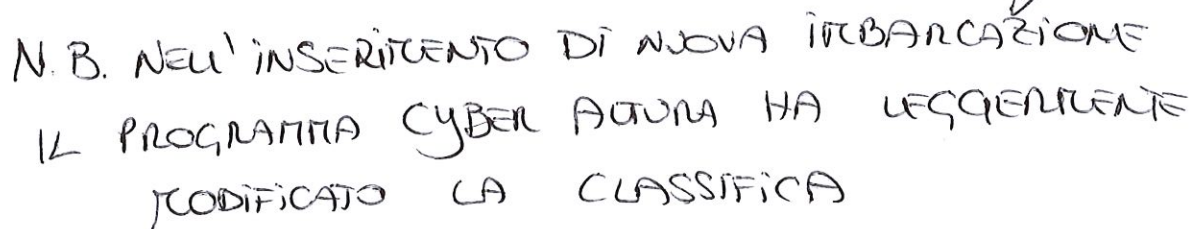 N.B. NELL'INSERIMENTO DI NUOVA IMBARCAZIONE
IL PROGRAMMA CYBER ALTURA HA LEGGERMENTE
MODIFICATO LA CLASSIFICA